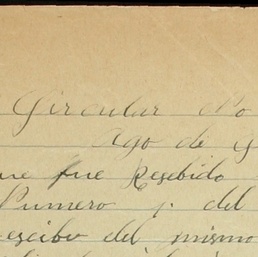 Circular No
Ago de
que fue Resebido
Numero y del
escibu del mismo